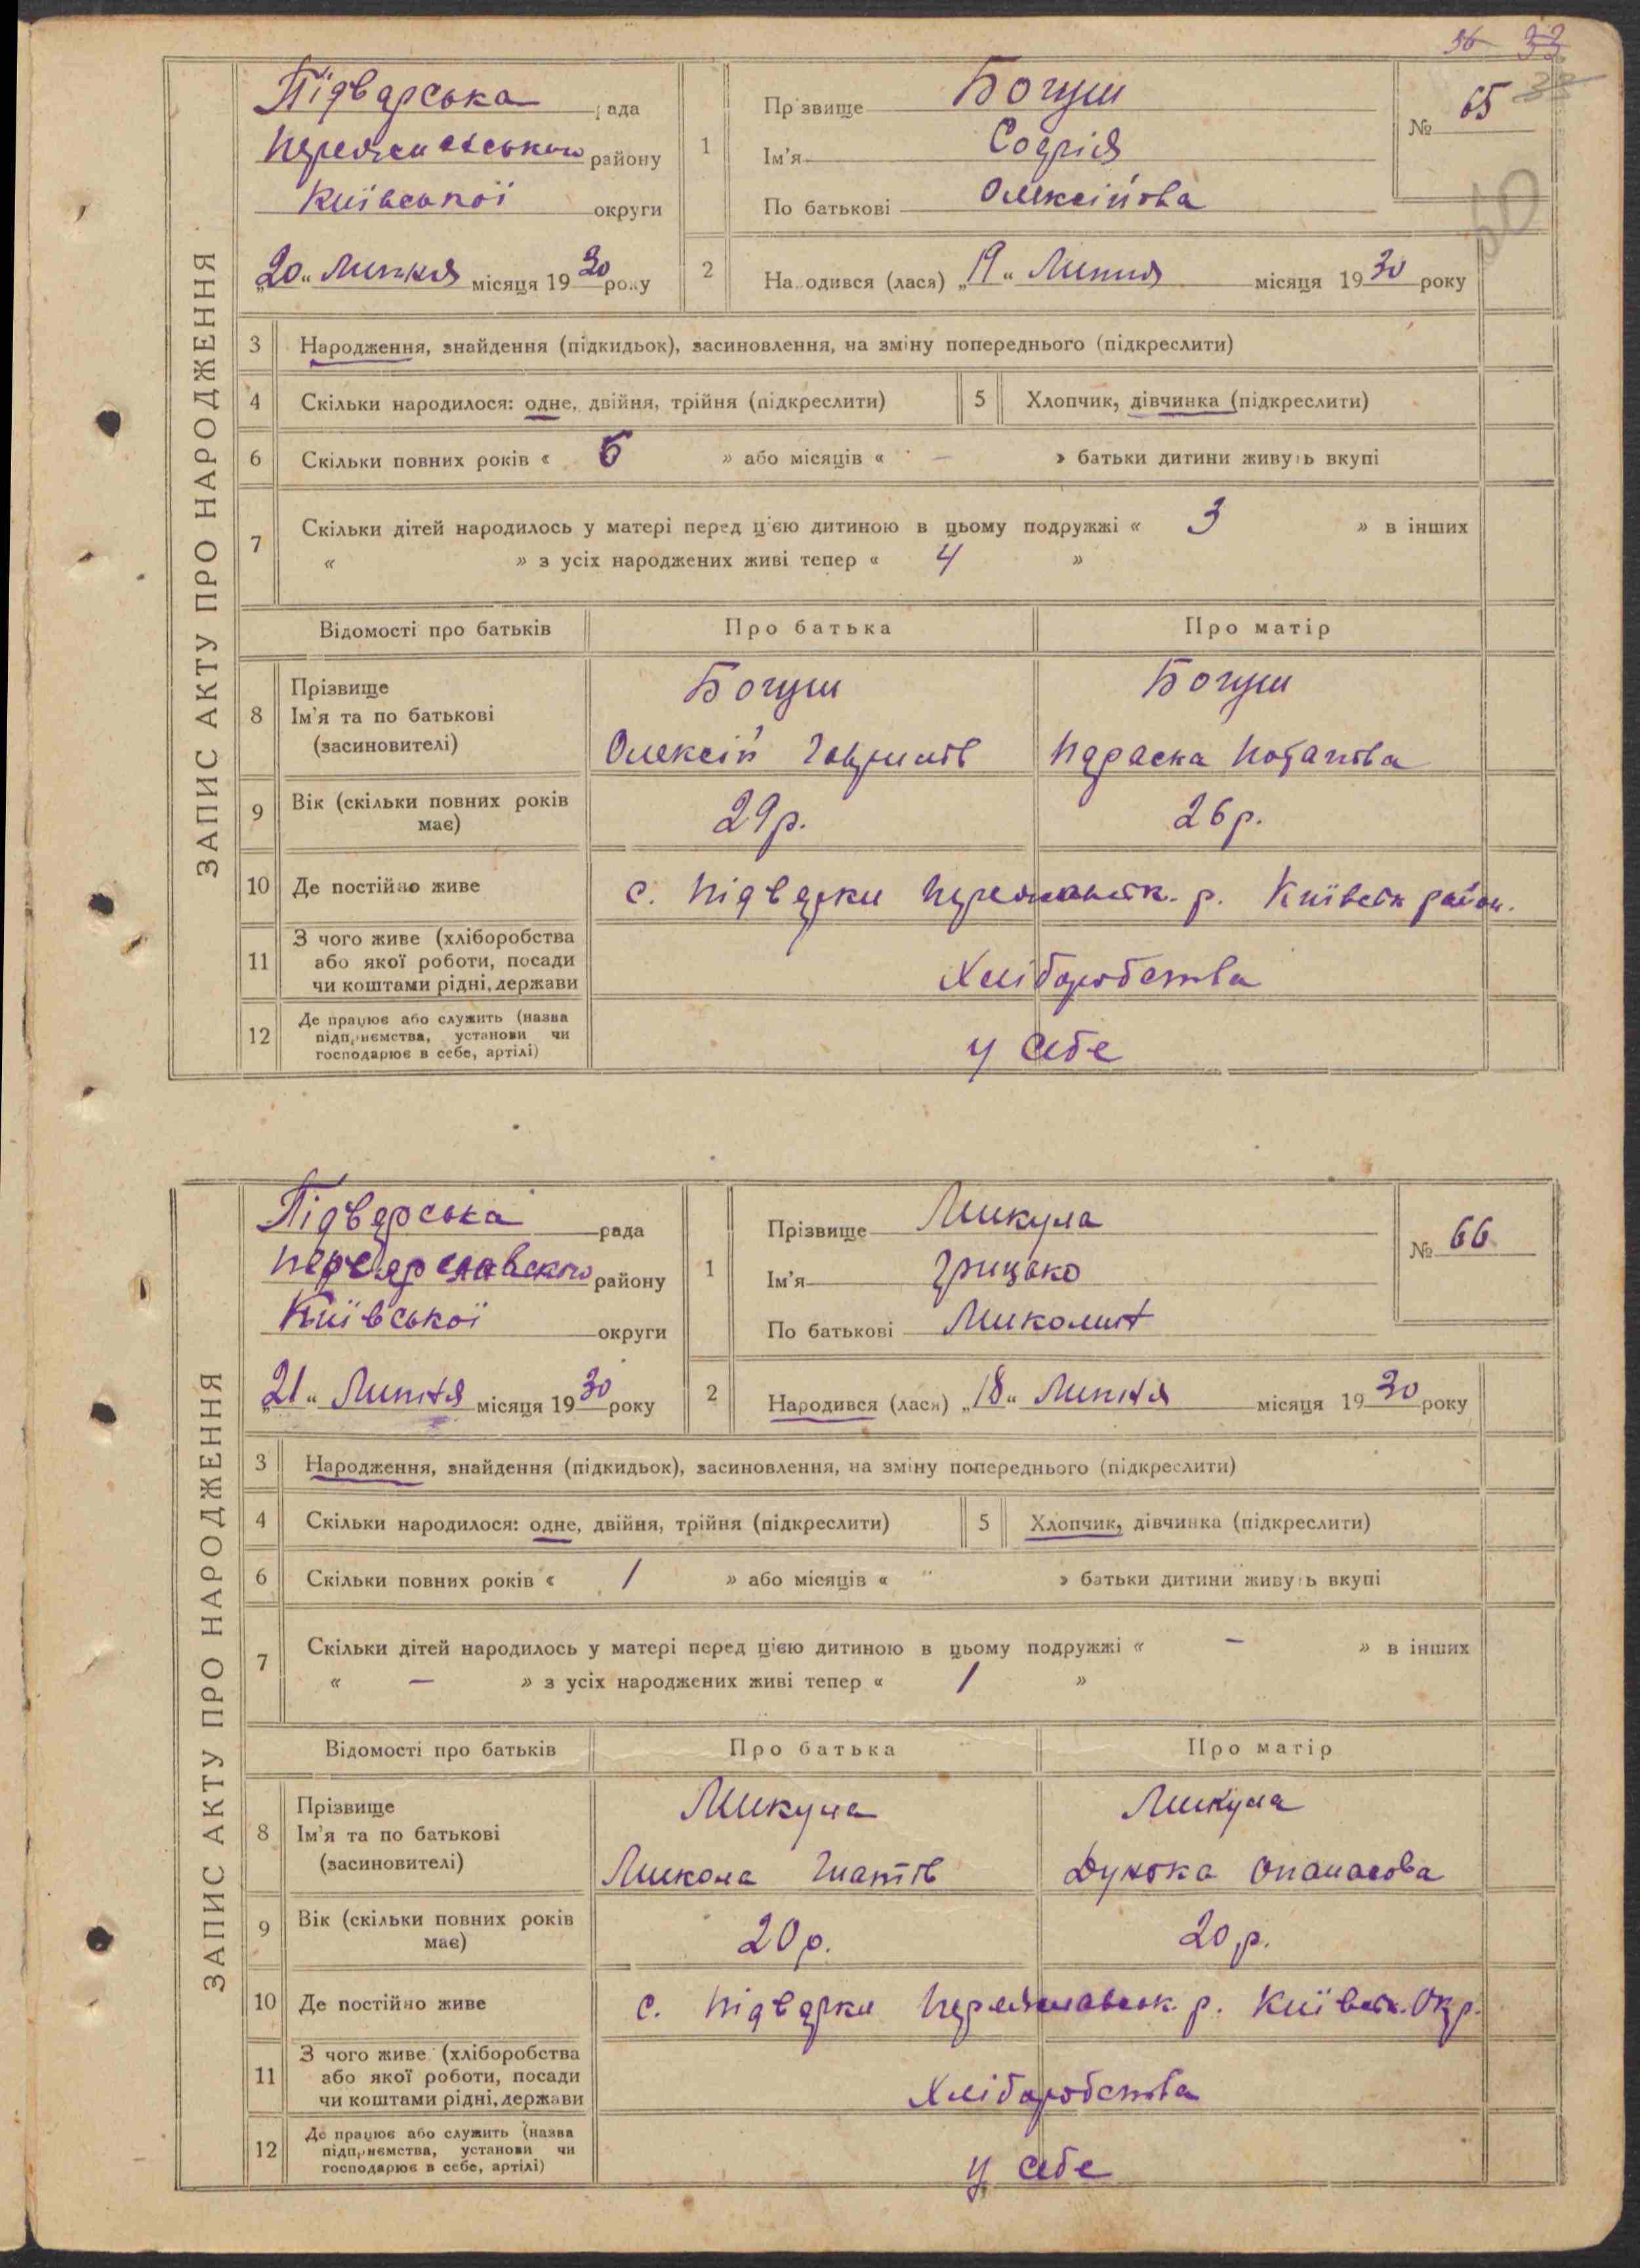 56 33
33
60
ЗАПИС АКТУ ПРО НАРОДЖЕННЯ
Підварська рада
району
Київської округи
„20“ Липня місяця 1930 року
1
Прізвище Богуш
Ім'я Софія
По батькові Олексійова
№ 65
2
Народився (лася) „19“ Липня місяця 1930 року
3 Народження, знайдення (підкидьок), засиновлення, на зміну попереднього (підкреслити)
4 Скільки народилося: одне, двійня, трійня (підкреслити) 5 Хлопчик, дівчинка (підкреслити)
6 Скільки повних років « 6 » або місяців « – » батьки дитини живуть вкупі
7 Скільки дітей народилось у матері перед цією дитиною в цьому подружжі « 3 » в інших
« » з усіх народжених живі тепер « 4 »
Відомості про батьків Про батька Про матір
8 Прізвище
Ім'я та по батькові
(засиновителі)
Богуш Богуш
Олексій Параска Потапова
9 Вік (скільки повних років
має)
29р. 26р.
10 Де постійно живе с. Підварки р. Київськ район.
11 З чого живе (хліборобства
або якої роботи, посади
чи коштами рідні, держави
Хліборобства
12 Де працює або служить (назва
підприємства, установи чи
господарює в себе, артілі)
у себе
ЗАПИС АКТУ ПРО НАРОДЖЕННЯ
Підварська рада
Переяславського району
Київської округи
„21“ Липня місяця 1930 року
1
Прізвище Микула
Ім'я Грицько
По батькові
№ 66
2
Народився (лася) „18“ Липня місяця 1930 року
3 Народження, знайдення (підкидьок), засиновлення, на зміну попереднього (підкреслити)
4 Скільки народилося: одне, двійня, трійня (підкреслити) 5 Хлопчик, дівчинка (підкреслити)
6 Скільки повних років « 1 » або місяців « » батьки дитини живуть вкупі
7 Скільки дітей народилось у матері перед цією дитиною в цьому подружжі « – » в інших
« – » з усіх народжених живі тепер « 1 »
Відомості про батьків Про батька Про матір
8 Прізвище
Ім'я та по батькові
(засиновителі)
Микула Микула
Микола Дунька Опанасова
9 Вік (скільки повних років
має)
20р. 20р.
10 Де постійно живе с. Підварки Переяславськ. р. Київськ. Окр.
11 З чого живе (хліборобства
або якої роботи, посади
чи коштами рідні, держави
Хліборобства
12 Де працює або служить (назва
підприємства, установи чи
господарює в себе, артілі)
у себе